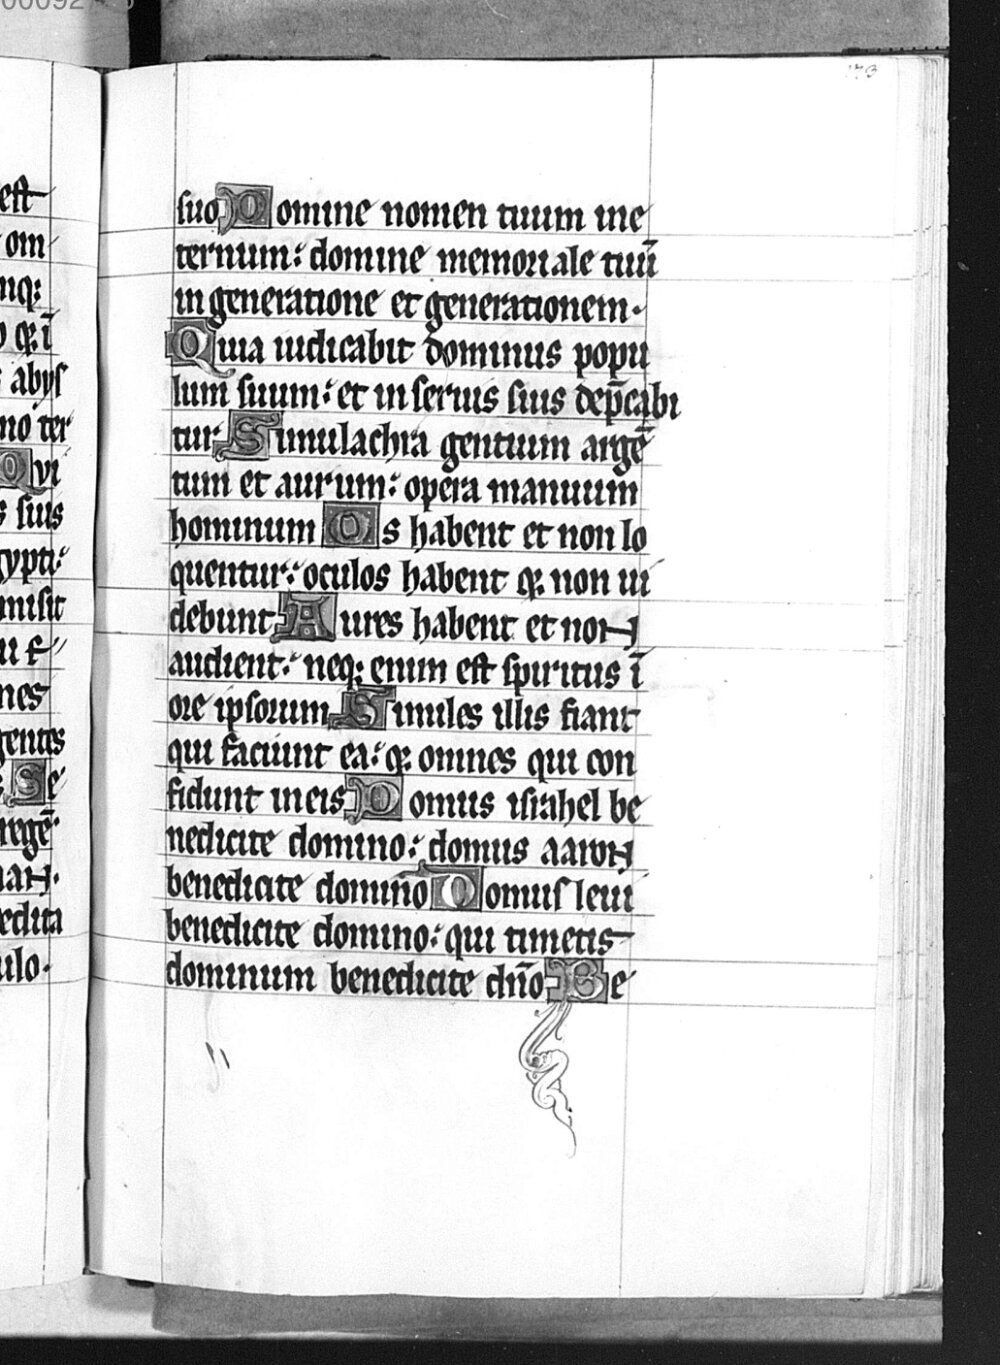 suo Domine nomen tuum in e
ternum: domine memoriale tuū
in generatione et generationem.
Quia iudicabit dominus popu
lum suum: et in seruis suis dep̄cabi
tur. Simulachra gentium argē
tum et aurum: opera manuum
hominum Os habent et non lo
quentur: oculos habent ⁊ non ui
debunt Aures habent et non
audient: neq; enim est spiritus ī
ore ipsorum Similes illis fiant
qui faciunt ea: ⁊ omnes qui con
fidunt in eis Domus israhel be
nedicite domino: domus aaron
benedicite domino Domus leui
benedicite domino: qui timetis
dominum benedicite dn̄o Be